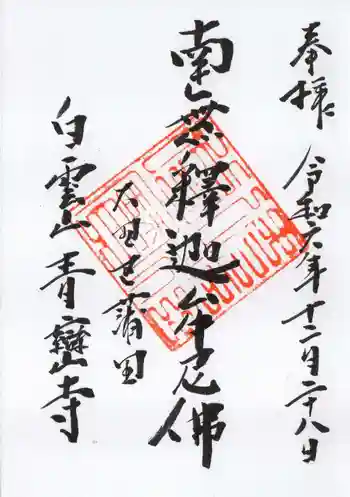 奉拝
令和六年十二月二十八日
南無釋迦牟尼佛
大田区蒲田
白雲山青巒寺